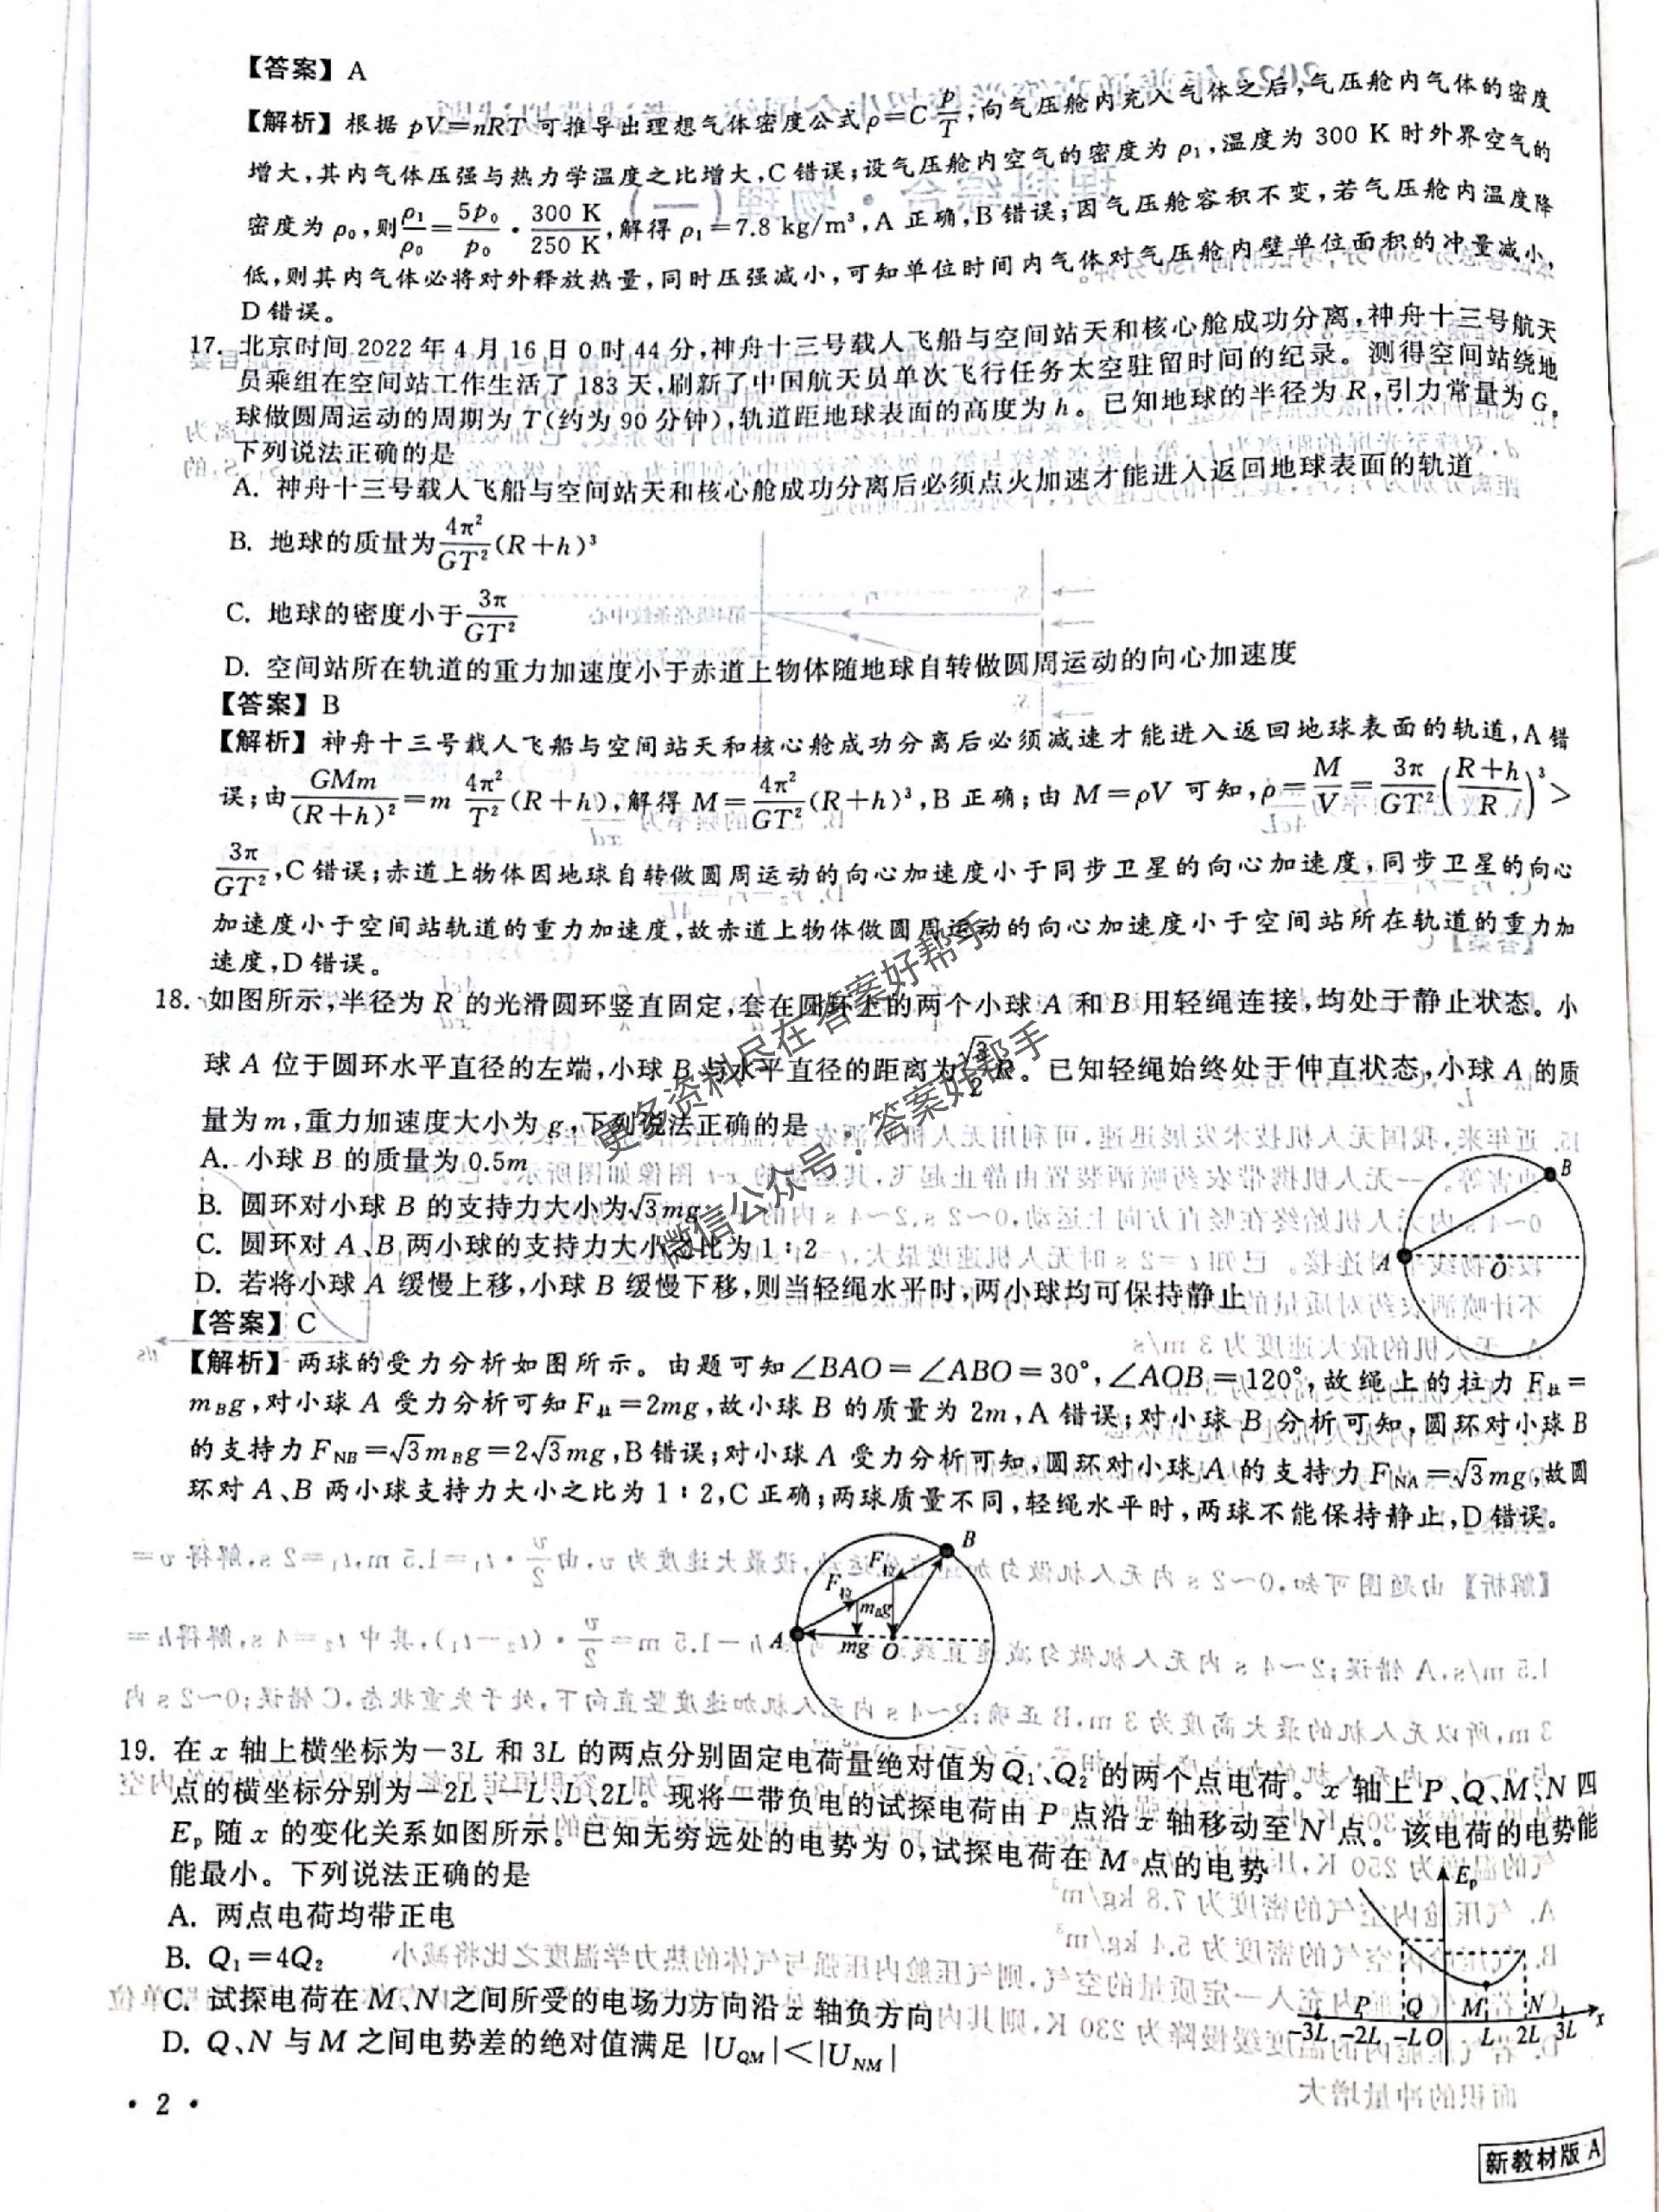 【答案】A
【解析】根据 pV=nRT 可推导出理想气体密度公式ρ=C p/T,向气压舱内充入气体之后,气压舱内气体的密度
增大,其内气体压强与热力学温度之比增大,C 错误;设气压舱内空气的密度为 ρ₁,温度为 300 K 时外界空气的
密度为 ρ₀,则 ρ₁/ρ₀=5p₀/p₀·300 K/250 K,解得 ρ₁=7.8 kg/m³,A 正确,B 错误;因气压舱容积不变,若气压舱内温度降
低,则其内气体必将对外释放热量,同时压强减小,可知单位时间内气体对气压舱内壁单位面积的冲量减小,
D 错误。
17. 北京时间 2022 年 4 月 16 日 0 时 44 分,神舟十三号载人飞船与空间站天和核心舱成功分离,神舟十三号航天
员乘组在空间站工作生活了 183 天,刷新了中国航天员单次飞行任务太空驻留时间的纪录。测得空间站绕地
球做圆周运动的周期为 T(约为 90 分钟),轨道距地球表面的高度为 h。已知地球的半径为 R,引力常量为 G。
下列说法正确的是
A. 神舟十三号载人飞船与空间站天和核心舱成功分离后必须点火加速才能进入返回地球表面的轨道
B. 地球的质量为 4π²/GT² (R+h)³
C. 地球的密度小于 3π/GT²
D. 空间站所在轨道的重力加速度小于赤道上物体随地球自转做圆周运动的向心加速度
【答案】B
【解析】神舟十三号载人飞船与空间站天和核心舱成功分离后必须减速才能进入返回地球表面的轨道,A 错
误;由 GMm/(R+h)²=m 4π²/T² (R+h),解得 M=4π²/GT² (R+h)³,B 正确;由 M=ρV 可知,ρ=M/V=3π/GT² ((R+h)/R)³>
3π/GT²,C 错误;赤道上物体因地球自转做圆周运动的向心加速度小于同步卫星的向心加速度,同步卫星的向心
加速度小于空间站轨道的重力加速度,故赤道上物体做圆周运动的向心加速度小于空间站所在轨道的重力加
速度,D 错误。
18. 如图所示,半径为 R 的光滑圆环竖直固定,套在圆环上的两个小球 A 和 B 用轻绳连接,均处于静止状态。小
球 A 位于圆环水平直径的左端,小球 B 与水平直径的距离为 √3/2 R。已知轻绳始终处于伸直状态,小球 A 的质
量为 m,重力加速度大小为 g,下列说法正确的是
A. 小球 B 的质量为 0.5m
B. 圆环对小球 B 的支持力大小为√3mg
C. 圆环对 A、B 两小球的支持力大小之比为 1∶2
D. 若将小球 A 缓慢上移,小球 B 缓慢下移,则当轻绳水平时,两小球均可保持静止
B
A
O
更多资料尽在答案好帮手
微信公众号:答案好帮手
【答案】C
【解析】两球的受力分析如图所示。由题可知∠BAO=∠ABO=30°,∠AOB=120°,故绳上的拉力 F拉=
m_Bg,对小球 A 受力分析可知 F拉=2mg,故小球 B 的质量为 2m,A 错误;对小球 B 分析可知,圆环对小球 B
的支持力 F_NB=√3m_Bg=2√3mg,B 错误;对小球 A 受力分析可知,圆环对小球 A 的支持力 F_NA=√3mg,故圆
环对 A、B 两小球支持力大小之比为 1∶2,C 正确;两球质量不同,轻绳水平时,两球不能保持静止,D 错误。
B
F拉
F拉
m_Bg
A
mg O
19. 在 x 轴上横坐标为−3L 和 3L 的两点分别固定电荷量绝对值为 Q₁、Q₂ 的两个点电荷。x 轴上 P、Q、M、N 四
点的横坐标分别为−2L、−L、L、2L。现将一带负电的试探电荷由 P 点沿 x 轴移动至 N 点。该电荷的电势能
Eₚ 随 x 的变化关系如图所示。已知无穷远处的电势为 0,试探电荷在 M 点的电势
能最小。下列说法正确的是
A. 两点电荷均带正电
B. Q₁=4Q₂
C. 试探电荷在 M、N 之间所受的电场力方向沿 x 轴负方向
D. Q、N 与 M 之间电势差的绝对值满足 |U_QM|<|U_NM|
Eₚ
P Q M N
−3L −2L −L O L 2L 3L x
· 2 ·
新教材版 A